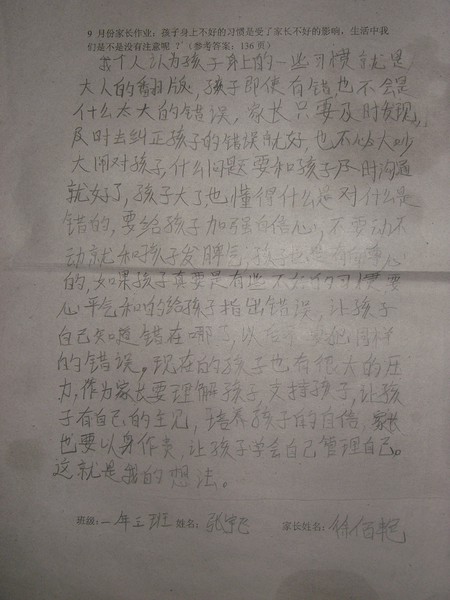 9 月份家长作业：孩子身上不好的习惯是受了家长不好的影响，生活中我
们是不是没有注意呢？（参考答案：136 页）
我个人认为孩子身上的一些习惯就是
大人的翻版，孩子即使有错，也不会是
什么太大的错误，家长只要及时发现，
及时去纠正孩子的错误就好，也不必大吵
大闹对孩子，什么问题要和孩子及时沟通
就好了，孩子大了，也懂得什么是对什么是
错的，要给孩子加强自信心，不要动不
动就和孩子发脾气，孩子也是有自尊心
的，如果孩子真要是有些不好的习惯要
心平气和的给孩子指出错误，让孩子
自己知道错在哪里，以后不要犯同样
的错误。现在的孩子也有很大的压
力，作为家长要理解孩子，支持孩子，让孩
子有自己的主见，培养孩子的自信，家长
也要以身作责，让孩子学会自己管理自己。
这就是我的想法。
班级：一年三班 姓名：张宇飞 家长姓名：徐佰艳